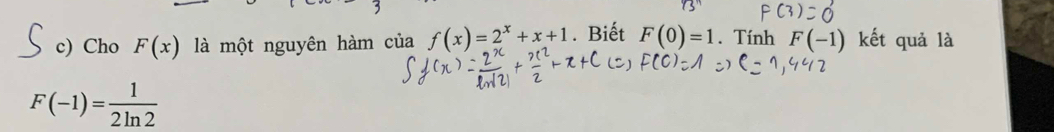 3 F(3)=0
S c) Cho F(x) là một nguyên hàm của f(x)=2^x+x+1. Biết F(0)=1. Tính F(-1) kết quả là
∫f(x) = 2^x/ln|2| + x^2/2 + x + C (=) F(0)=1 => C = 1,442
F(-1) = 1/(2 ln 2)